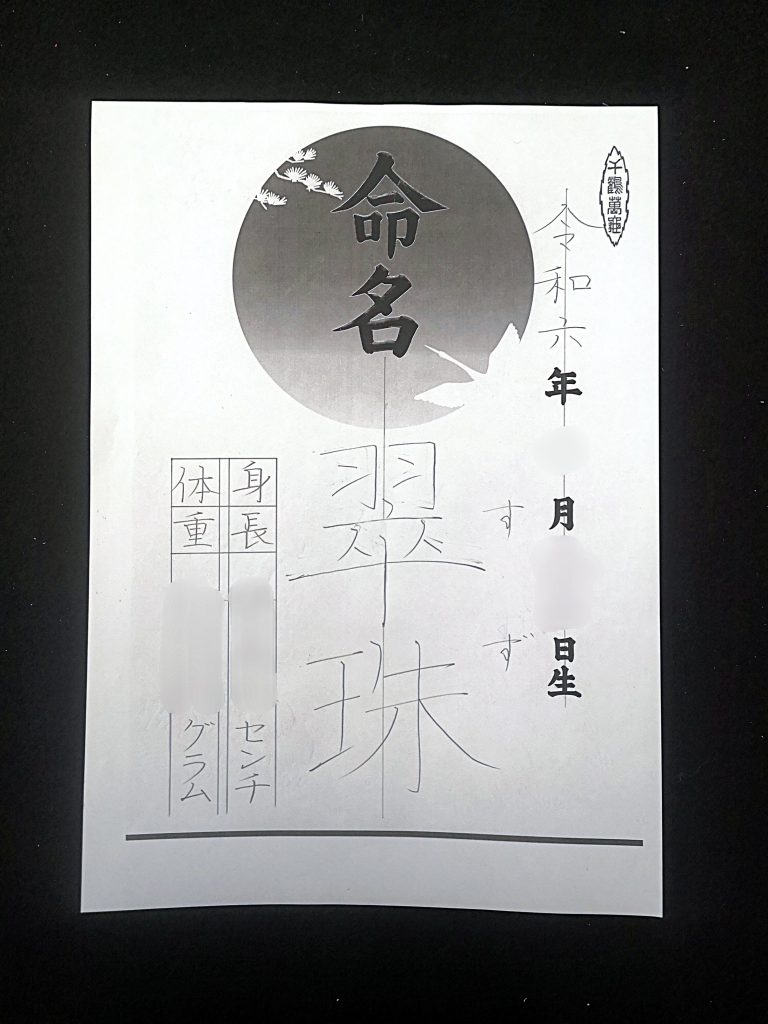 千鶴萬亀
令和六年 月 日生
命名
翠珠
すず
身長 センチ
体重 グラム